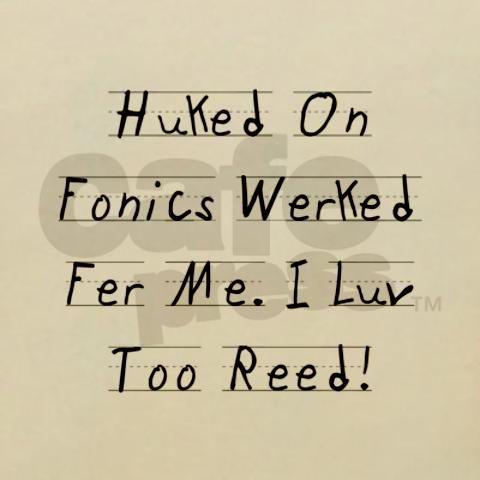 Huked On
Fonics Werked
Fer Me. I Luv
Too Reed!
cafe
press™